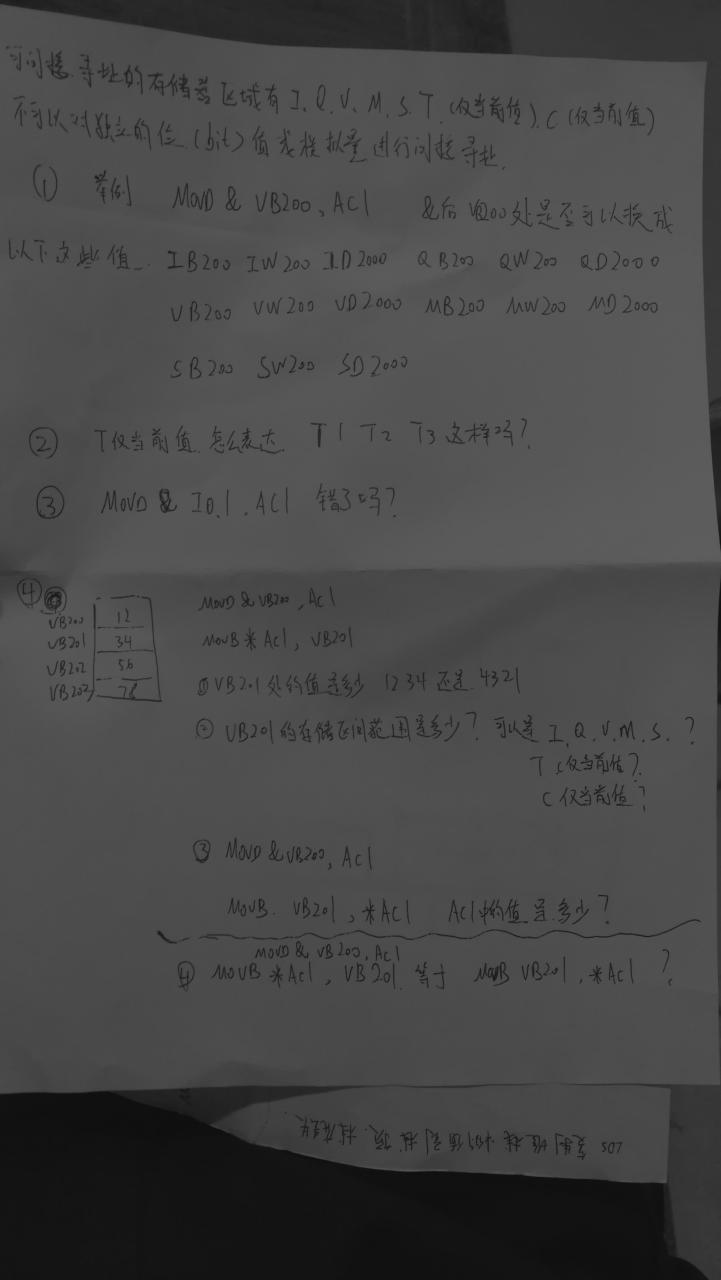 可间接寻址的存储器区域有 I、Q、V、M、S、T (仅当前值)、C (仅当前值)
不可以对独立的位 (bit) 值或模拟量进行间接寻址.
① 举例 MOVD & VB200, AC1 &后 VB200处是否可以换成
以下这些值 IB200 IW200 ID2000 QB200 QW200 QD2000
VB200 VW200 VD2000 MB200 MW200 MD2000
SB200 SW200 SD2000
② T仅当前值 怎么表达 T1 T2 T3 这样吗?
③ MOVD & I0.1. AC1 错了吗?
④
VB200 12
VB201 34
VB202 56
VB203 78
MOVD & VB200, AC1
MOVB *AC1, VB201
① VB201处的值是多少 1234 还是 4321
② VB201的存储区间范围是多少? 可以是 I. Q. V. M. S. ?
T (仅当前值?
C 仅当前值?
③ MOVD & VB200, AC1
MOVB. VB201, *AC1 AC1中的值是多少?
MOVD & VB200, AC1
④ MOVB *AC1, VB201. 等于 MOVB VB201, *AC1 ?
LDS 复制堆栈中的值到栈顶.